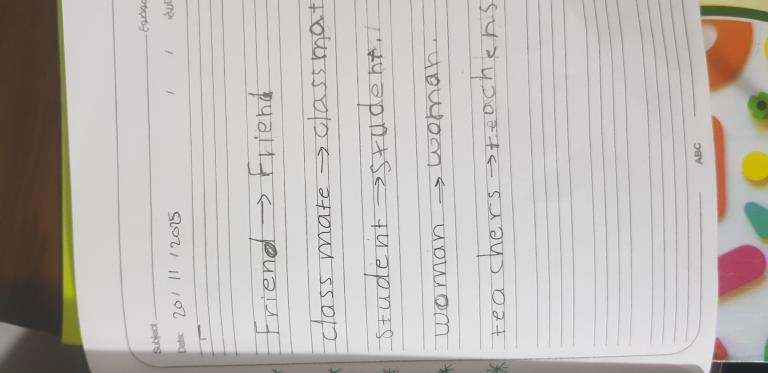 Subject
Date: 20/11/2025
Friend → Friend
class mate → classmat
student → student.
woman → woman.
teachers → teachers
ABC